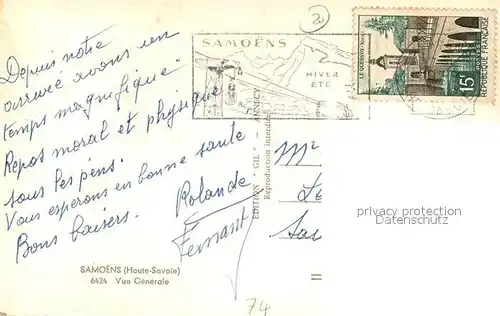 2
SAMOËNS
HIVER
ÉTÉ
LE QUESNOY
15F
REPUBLIQUE FRANÇAISE
Depuis notre
arrivée avons un
temps magnifique.
Repos moral et physique
tous les pens.
Vous esperons en bonne sante
Bons baisers.
Rolande
Fernant
EDITION "GIL" - ANNECY
Reproduction interdite
Mr
privacy protection
Datenschutz
SAMOËNS (Haute-Savoie)
6424 Vue Générale
74